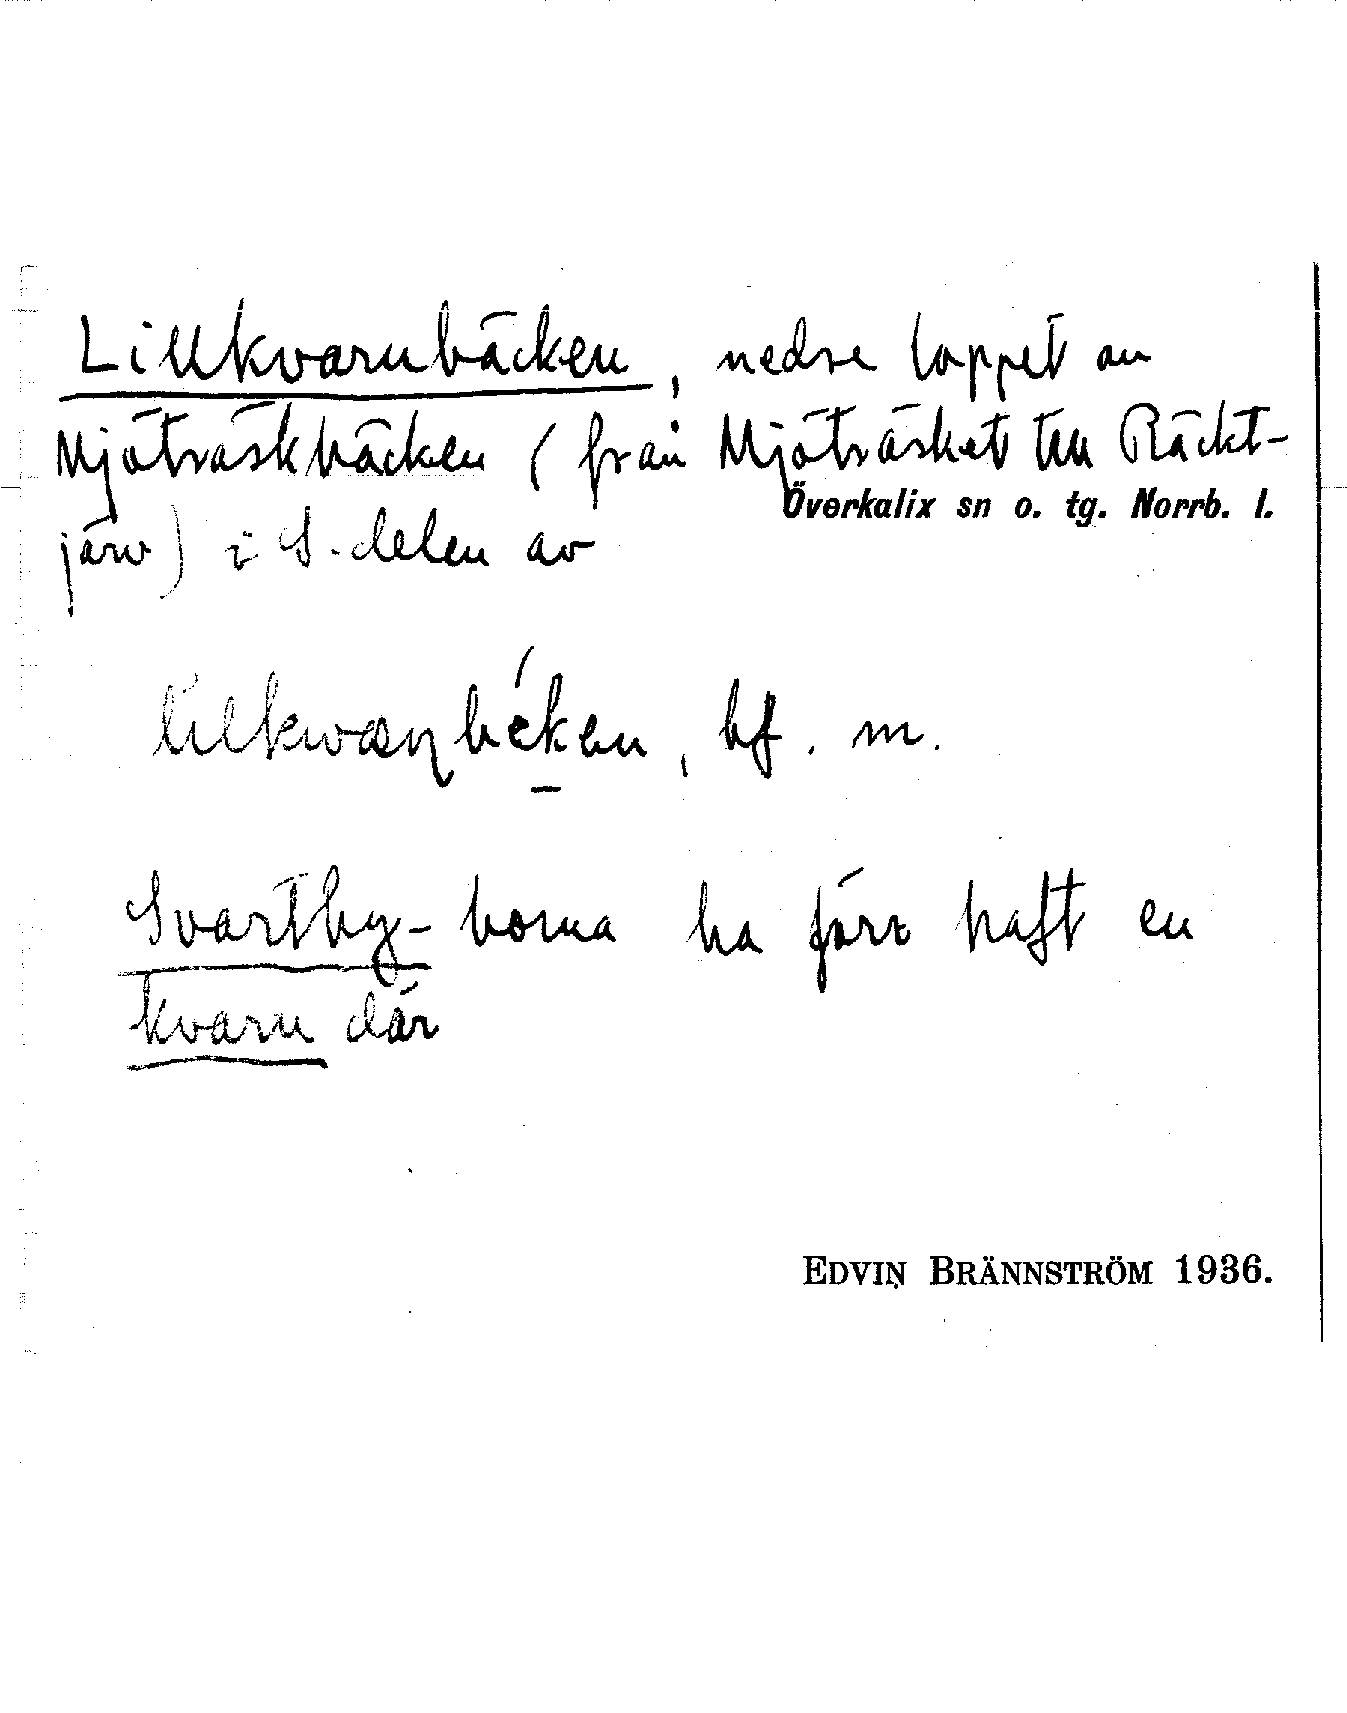 Lillkvarnbäcken, nedre loppet av
Mjöträskbäcken (från Mjöträsket till Räckt-
järv) i S. delen av
Överkalix sn o. tg. Norrb. l.
lilkwæɳbéken, bf. m.
Svartby-borna ha förr haft en
kvarn där
EDVIN BRÄNNSTRÖM 1936.